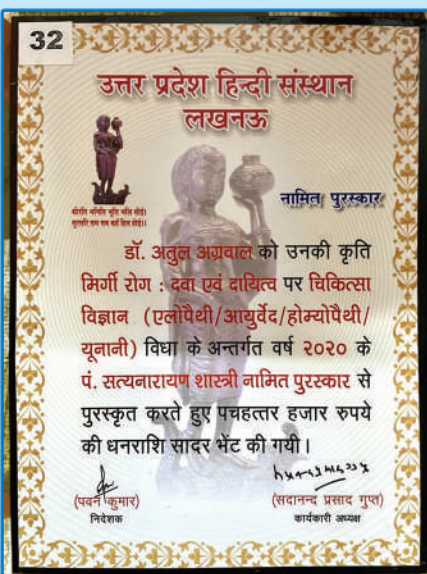 32
उत्तर प्रदेश हिन्दी संस्थान
लखनऊ
नामित पुरस्कार
कीरति भनिति भूति भलि सोई।
सुरसरि सम सब कहँ हित होई।।
डॉ. अतुल अग्रवाल को उनकी कृति
मिर्गी रोग : दवा एवं दायित्व पर चिकित्सा
विज्ञान (एलोपैथी/आयुर्वेद/होम्योपैथी/
यूनानी) विधा के अन्तर्गत वर्ष २०२० के
पं. सत्यनारायण शास्त्री नामित पुरस्कार से
पुरस्कृत करते हुए पचहत्तर हजार रुपये
की धनराशि सादर भेंट की गयी।
(पवन कुमार)
निदेशक
(सदानन्द प्रसाद गुप्त)
कार्यकारी अध्यक्ष